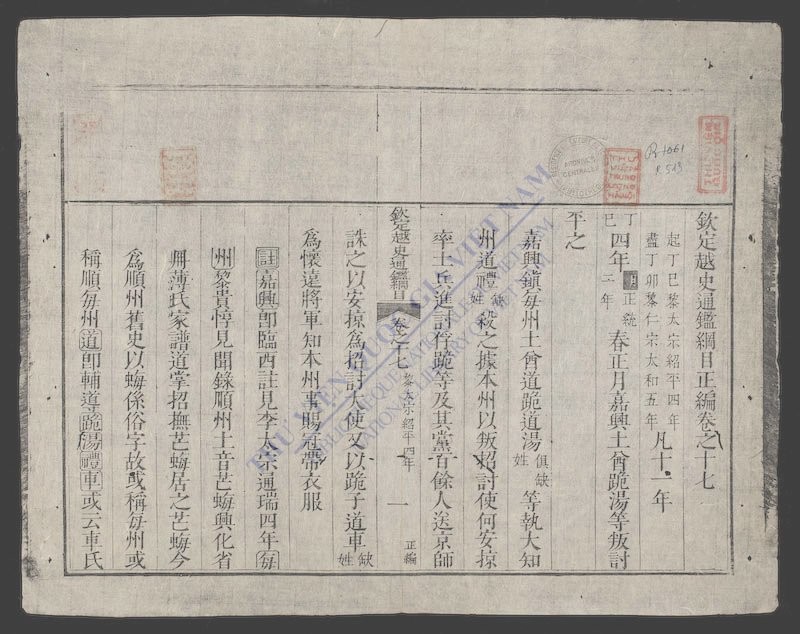 欽定越史通鑑綱目正編卷之十七
起丁巳黎太宗紹平四年
盡丁卯黎仁宗太和五年
凡十一年
丁巳四年明正統二年春正月嘉興土酋跪湯等叛討
平之
嘉興鎮每州土酋道跪道湯俱缺姓等執大知
州道禮缺姓殺之據本州以叛招討使何安掠
率土兵進討俘跪等及其黨百餘人送京師
欽定越史通鑑綱目 卷之十七 黎太宗紹平四年 一 正編
誅之以安掠爲招討大使又以跪子道車缺姓
爲懷遠將軍知本州事賜冠帶衣服
註嘉興卽臨西註見李太宗通瑞四年每
州黎貴惇見聞錄順州土音芒𧋟興化省
冊薄氏家譜道掌招撫芒𧋟居之芒𧋟今
爲順州舊史以𧋟係俗字故或稱每州或
稱順每州道卽輔導跪湯禮車或云車氏
THƯ VIỆN QUỐC GIA VIỆT NAM
NATIONAL LIBRARY OF VIETNAM
ARCHIVES CENTRALES